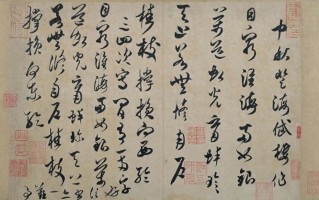 中秋登海岱樓作
目窮淮海滿如銀
萬道虹光育蚌珍
天上若無修月戶
桂枝撐損向西輪
三四次寫間有一兩字
好信書亦一難事
目窮淮海滿如銀萬
道虹光育蚌珍天上
若無修月戶桂枝
撐損向東輪